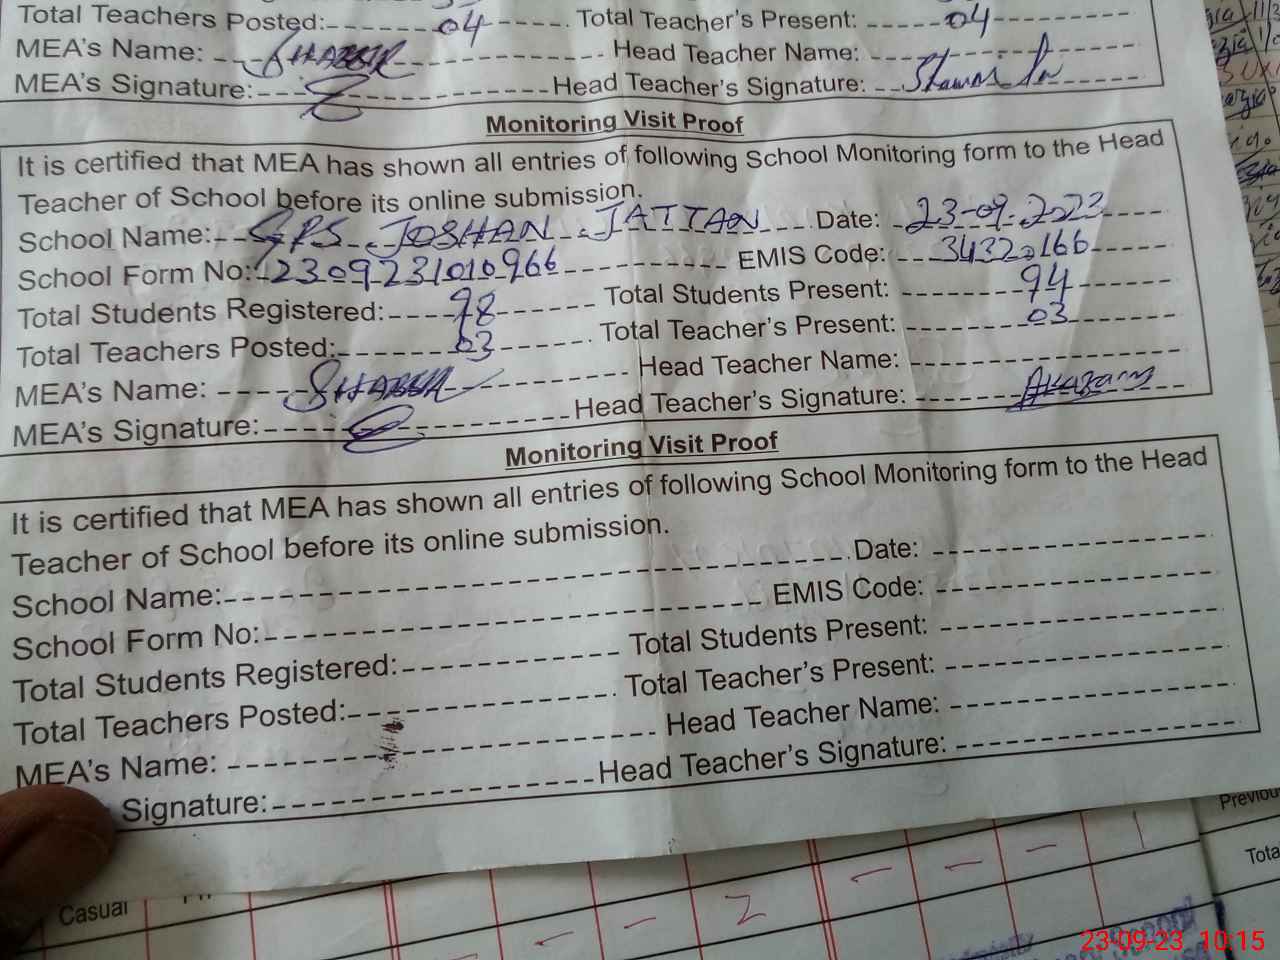 Total Teachers Posted: 04 Total Teacher's Present: 04
MEA's Name: SHABBIR Head Teacher Name:
MEA's Signature: Head Teacher's Signature:
Monitoring Visit Proof
It is certified that MEA has shown all entries of following School Monitoring form to the Head
Teacher of School before its online submission.
School Name: GPS JOSHAN JATTAN Date: 23-09-2023
School Form No: 2309231010966 EMIS Code: 34320166
Total Students Registered: 98 Total Students Present: 94
Total Teachers Posted: 03 Total Teacher's Present: 03
MEA's Name: SHABBIR Head Teacher Name:
MEA's Signature: Head Teacher's Signature:
Monitoring Visit Proof
It is certified that MEA has shown all entries of following School Monitoring form to the Head
Teacher of School before its online submission.
School Name: Date:
School Form No: EMIS Code:
Total Students Registered: Total Students Present:
Total Teachers Posted: Total Teacher's Present:
MEA's Name: Head Teacher Name:
Signature: Head Teacher's Signature:
Previou
Tota
Casual
2
23-09-23 10:15